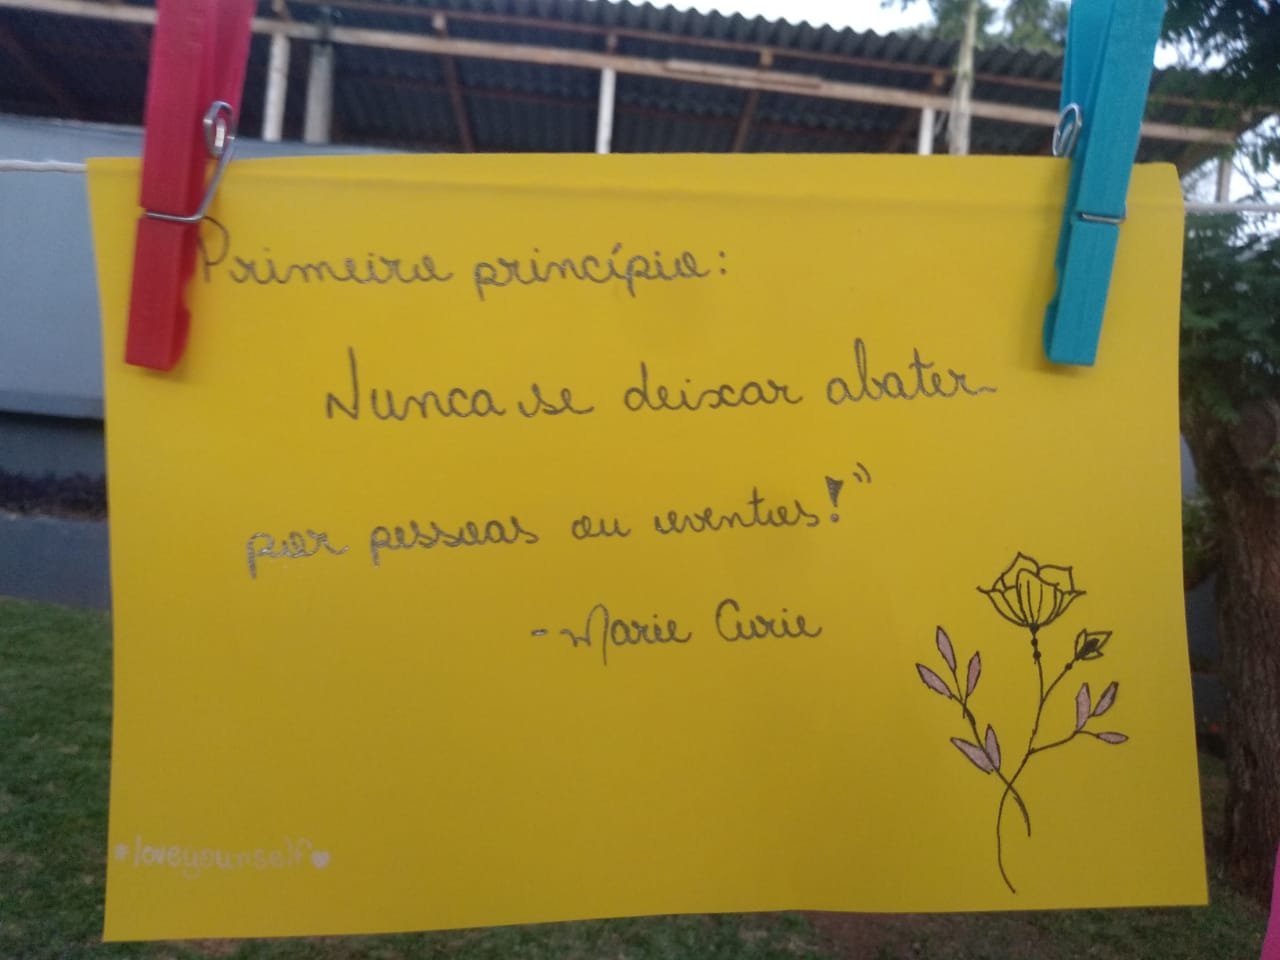 Primeiro princípio:
Nunca se deixar abater
por pessoas ou eventos!"
- Marie Curie
#loveyourself